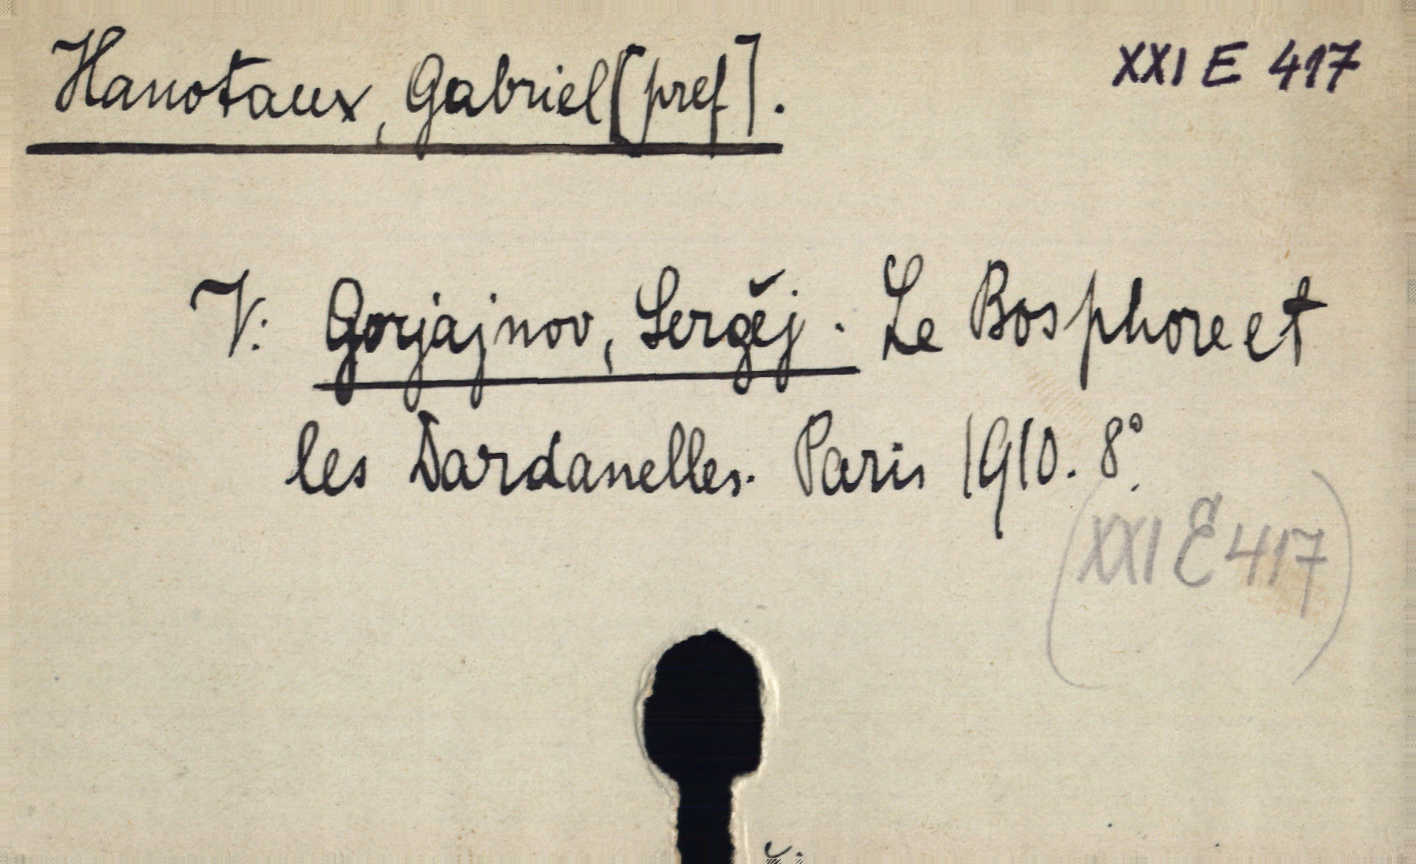 Hanotaux, Gabriel [pref]. XXI E 417
V: Gorjajnov, Sergěj. Le Bosphore et
les Dardanelles. Paris 1910. 8°.
(XXI E 417)